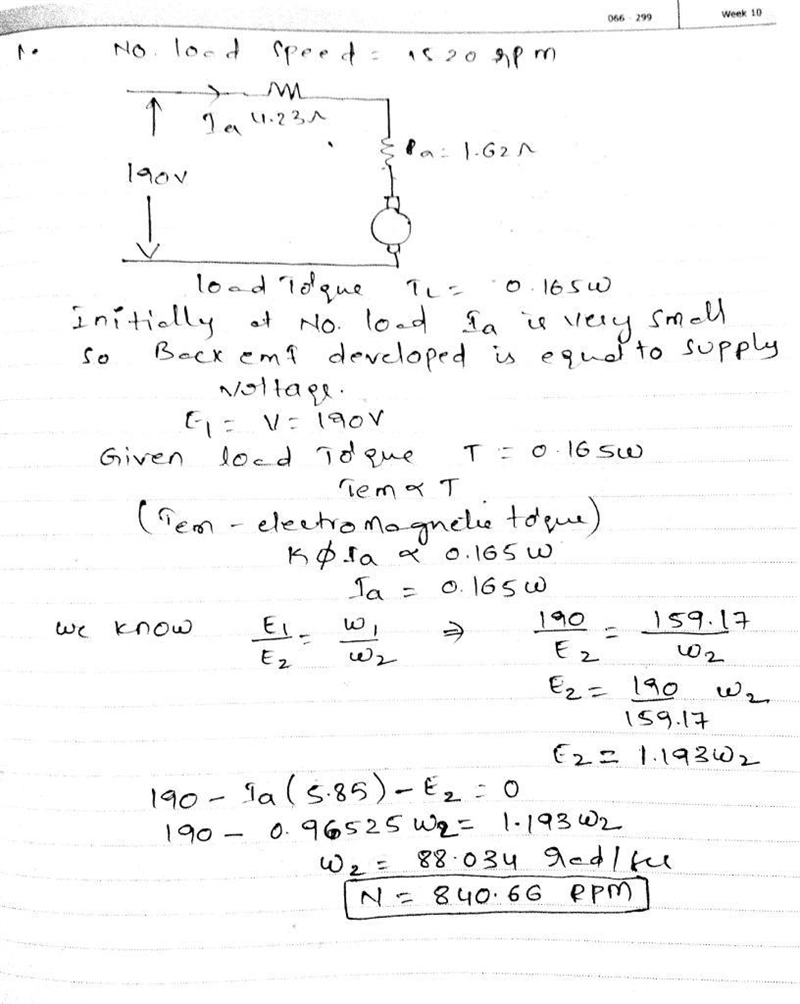 066 - 299
Week 10
1. No. load speed = 1520 rpm
Ia 4.23Ω
Ra = 1.62Ω
190V
load Torque TL = 0.165ω
Initially at No. load Ia is very small
so Back emf developed is equal to supply
voltage.
E1 = V = 190V
Given load Torque T = 0.165ω
Tem ∝ T
(Tem - electromagnetic torque)
Kϕ Ia ∝ 0.165ω
Ia = 0.165ω
we know E1/E2 = ω1/ω2 ⇒ 190/E2 = 159.17/ω2
E2 = 190/159.17 ω2
E2 = 1.193ω2
190 - Ia (5.85) - E2 = 0
190 - 0.96525 ω2 = 1.193ω2
ω2 = 88.034 rad/sec
N = 840.66 RPM